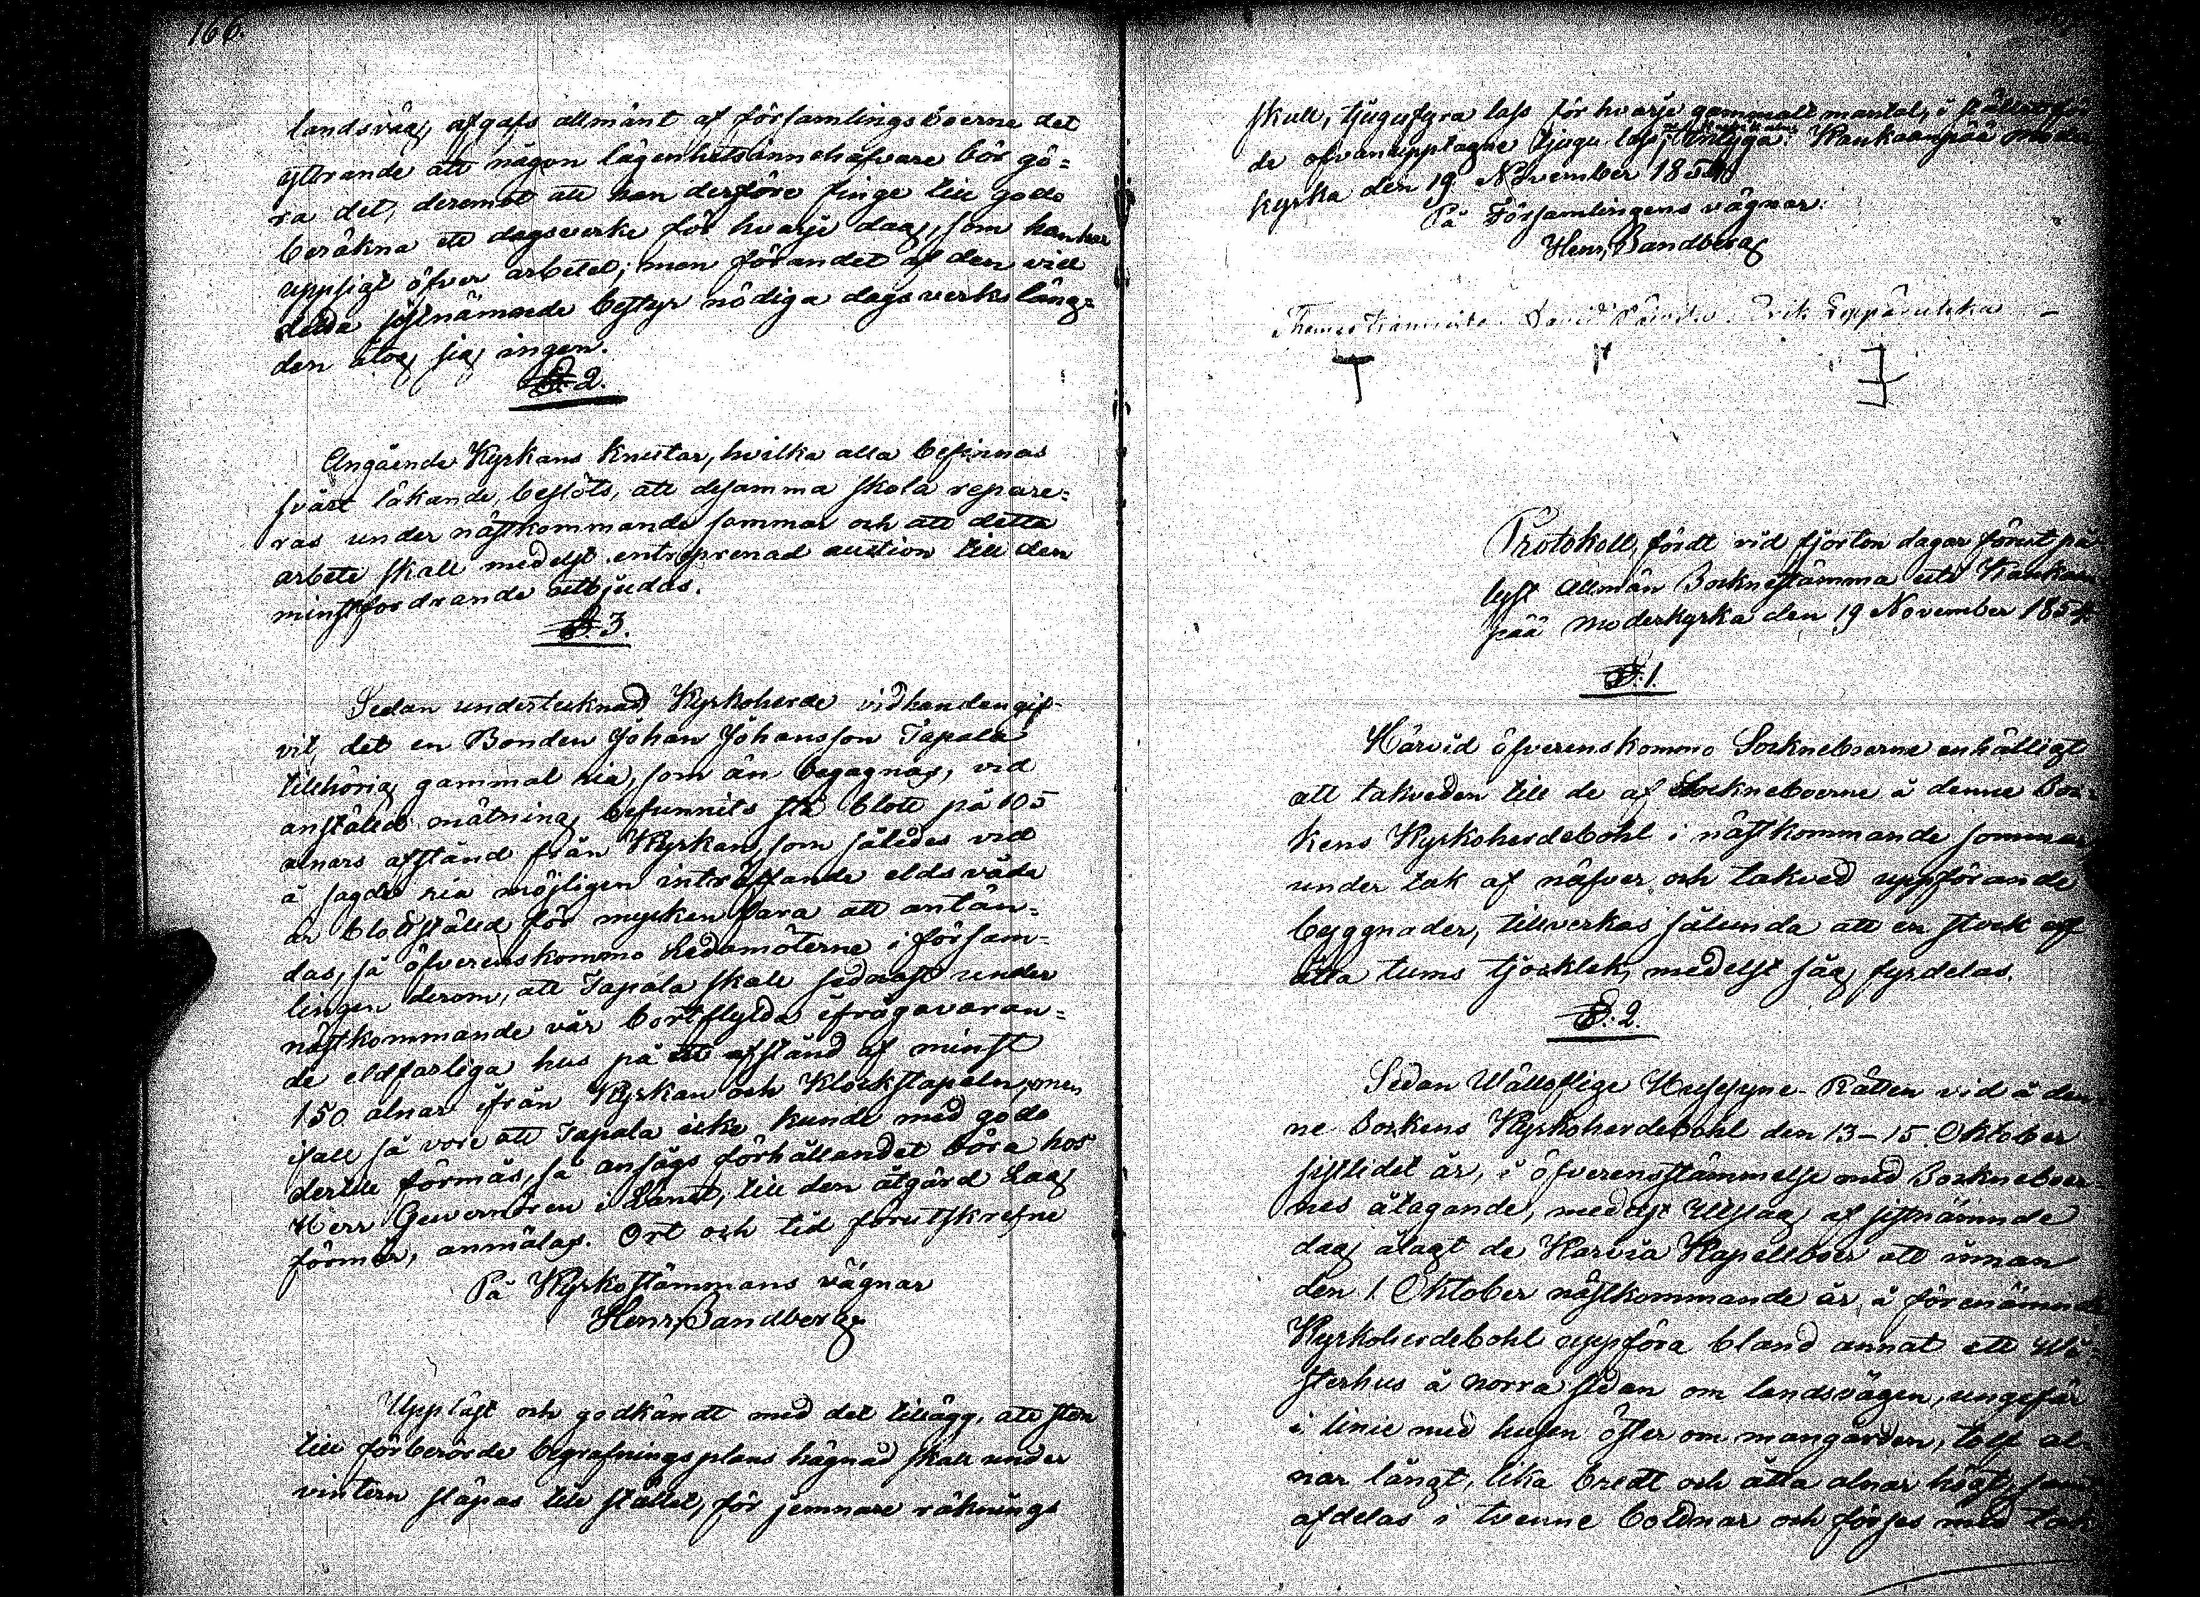 166.
landsväg, afgafs allmänt af församlingsboerne det
yttrande att någon lägenhetsinnehafvare bör gö=
ra det, deremot att han derföre finge till godo
beräkna ett dagsverke för hvarje dag, som han har
uppsigt öfver arbetet; men förandet af den vid
detta sistnämnde bestyr nödiga dagsverks läng=
den åtog sig ingen.
§. 2.
Angående Kyrkans knutar, hvilka alla befinnas
svårt läkande, beslöts, att desamma skola repare=
ras under nästkommande sommar och att detta
arbete skall medelst entreprenad auction till den
minstfordrande utbjudas.
§. 3.
Sedan undertecknad Kyrkoherde vidhandengif-
vit, det en Bonden Johan Johansson Tapala
tillhörig gammal ria, som än begagnas, vid
anstäld mätning befunnits stå blott på 105
alnars afstånd från Kyrkan, som således vid
å sagde ria möjligen inträffande eldsvåda
är blottstäld för mycken fara att antän=
das, så öfverenskommo Ledamöterne i försam=
lingen derom, att Tapala skall sednast under
nästkommande vår bortflytta ifrågavaran=
de eldfarliga hus på ett afstånd af minst
150 alnar ifrån Kyrkan och Klockstapeln, men
ifall så vore att Tapala icke kunde med godo
dertill förmås, så ansågs förhållandet böra hos
Herr Guvernören i Länet, till den åtgärd Lag
förmår, anmälas. Ort och tid förutskrefne
På Kyrkostämmans vägnar
Henr, Bandberg.
Uppläst och godkändt med det tillägg, att sten
till förberörde begrafningsplans hägnad skall under
vintern släpas till stället, för jemnare räknings
skull, tjugufyra lass för hvarje gammalt mantal, i stället för
de ofvanupptagne tjugu lass, Kankaanpää moder
kyrka den 19 November 1854
På Församlingens vägnar:
Henr, Bandberg
Thomas David Erik
Protokoll, fördt vid fjorton dagar förut på
lyst Allmän Socknestämma uti Kankaan
pää moderkyrka den 19 November 1854
§. 1.
Härvid öfverenskommo Sockneboerne enhälligt
att takveden till de af Sockneboerne å denne Soc-
kens Kyrkoherdebohl i nästkommande sommar
under tak af näfver och takved uppförande
byggnader, tillverkas sålunda att en stock af
åtta tums tjocklek, medelst såg fyrdelas.
§. 2.
Sedan Wällofliga Husesyne-Rätten vid å den
ne Sockens Kyrkoherdebohl den 13–15 Oktober
sistlidet år, i öfverensstämmelse med Socknebоer
nes åtagande, medelst Utslag af sistnämnde
dag ålagt de Karvia Kapellboer att innan
den 1 Oktober nästkommande år å förenämnde
Kyrkoherdebohl uppföra bland annat ett
sterhus å norra sidan om landsvägen, ungefär
i linie med husen öster om mangården, tolf al-
nar långt, lika bredt och åtta alnar högt, som
afdelas i tvenne bottnar och förses med tak